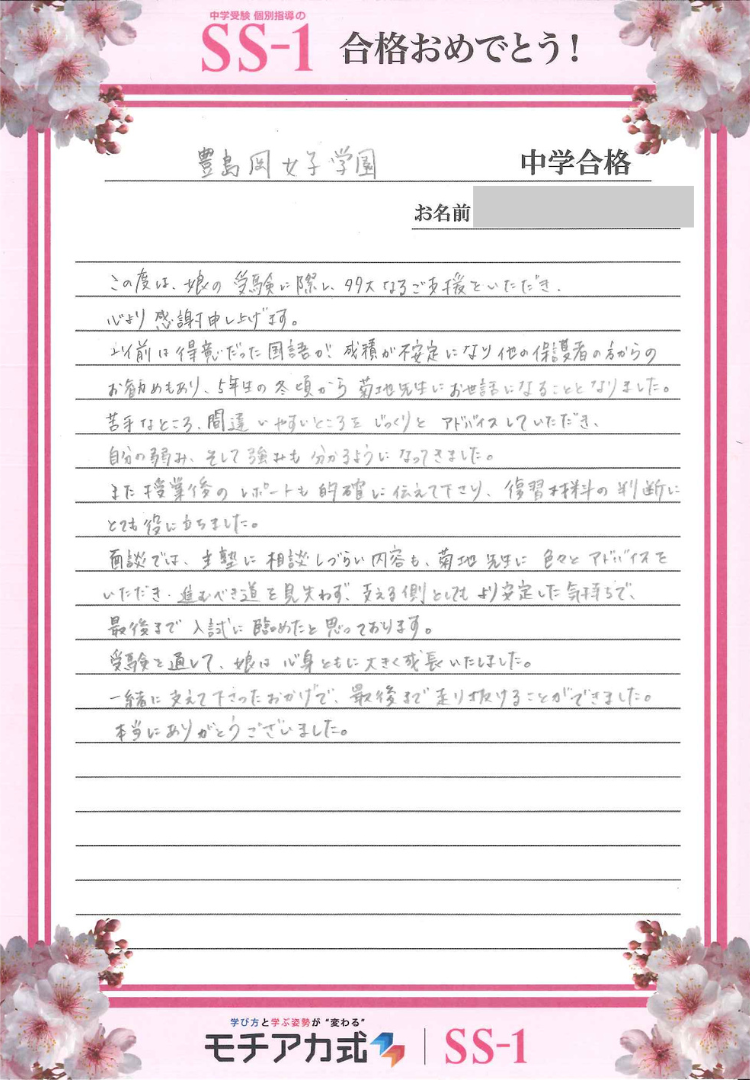 中学受験 個別指導の
SS-1 合格おめでとう!
豊島岡女子学園 中学合格
お名前
この度は、娘の受験に際し、多大なるご支援をいただき、
心より感謝申し上げます。
以前は得意だった国語が、成績が不安定になり他の保護者の方からの
お勧めもあり、5年生の冬頃から菊地先生にお世話になることとなりました。
苦手なところ、間違いやすいところをじっくりとアドバイスしていただき、
自分の弱み、そして強みも分かるようになってきました。
また授業後のレポートも的確に伝えて下さり、復習材料の判断に
とても役に立ちました。
面談では、主塾に相談しづらい内容も、菊地先生に色々とアドバイスを
いただき、進むべき道を見失わず、支える側としてもより安定した気持ちで、
最後まで入試に臨めたと思っております。
受験を通して、娘は心身ともに大きく成長いたしました。
一緒に支えて下さったおかげで、最後まで走り抜けることができました。
本当にありがとうございました。
学び方と学ぶ姿勢が“変わる”
モチアカ式 | SS-1